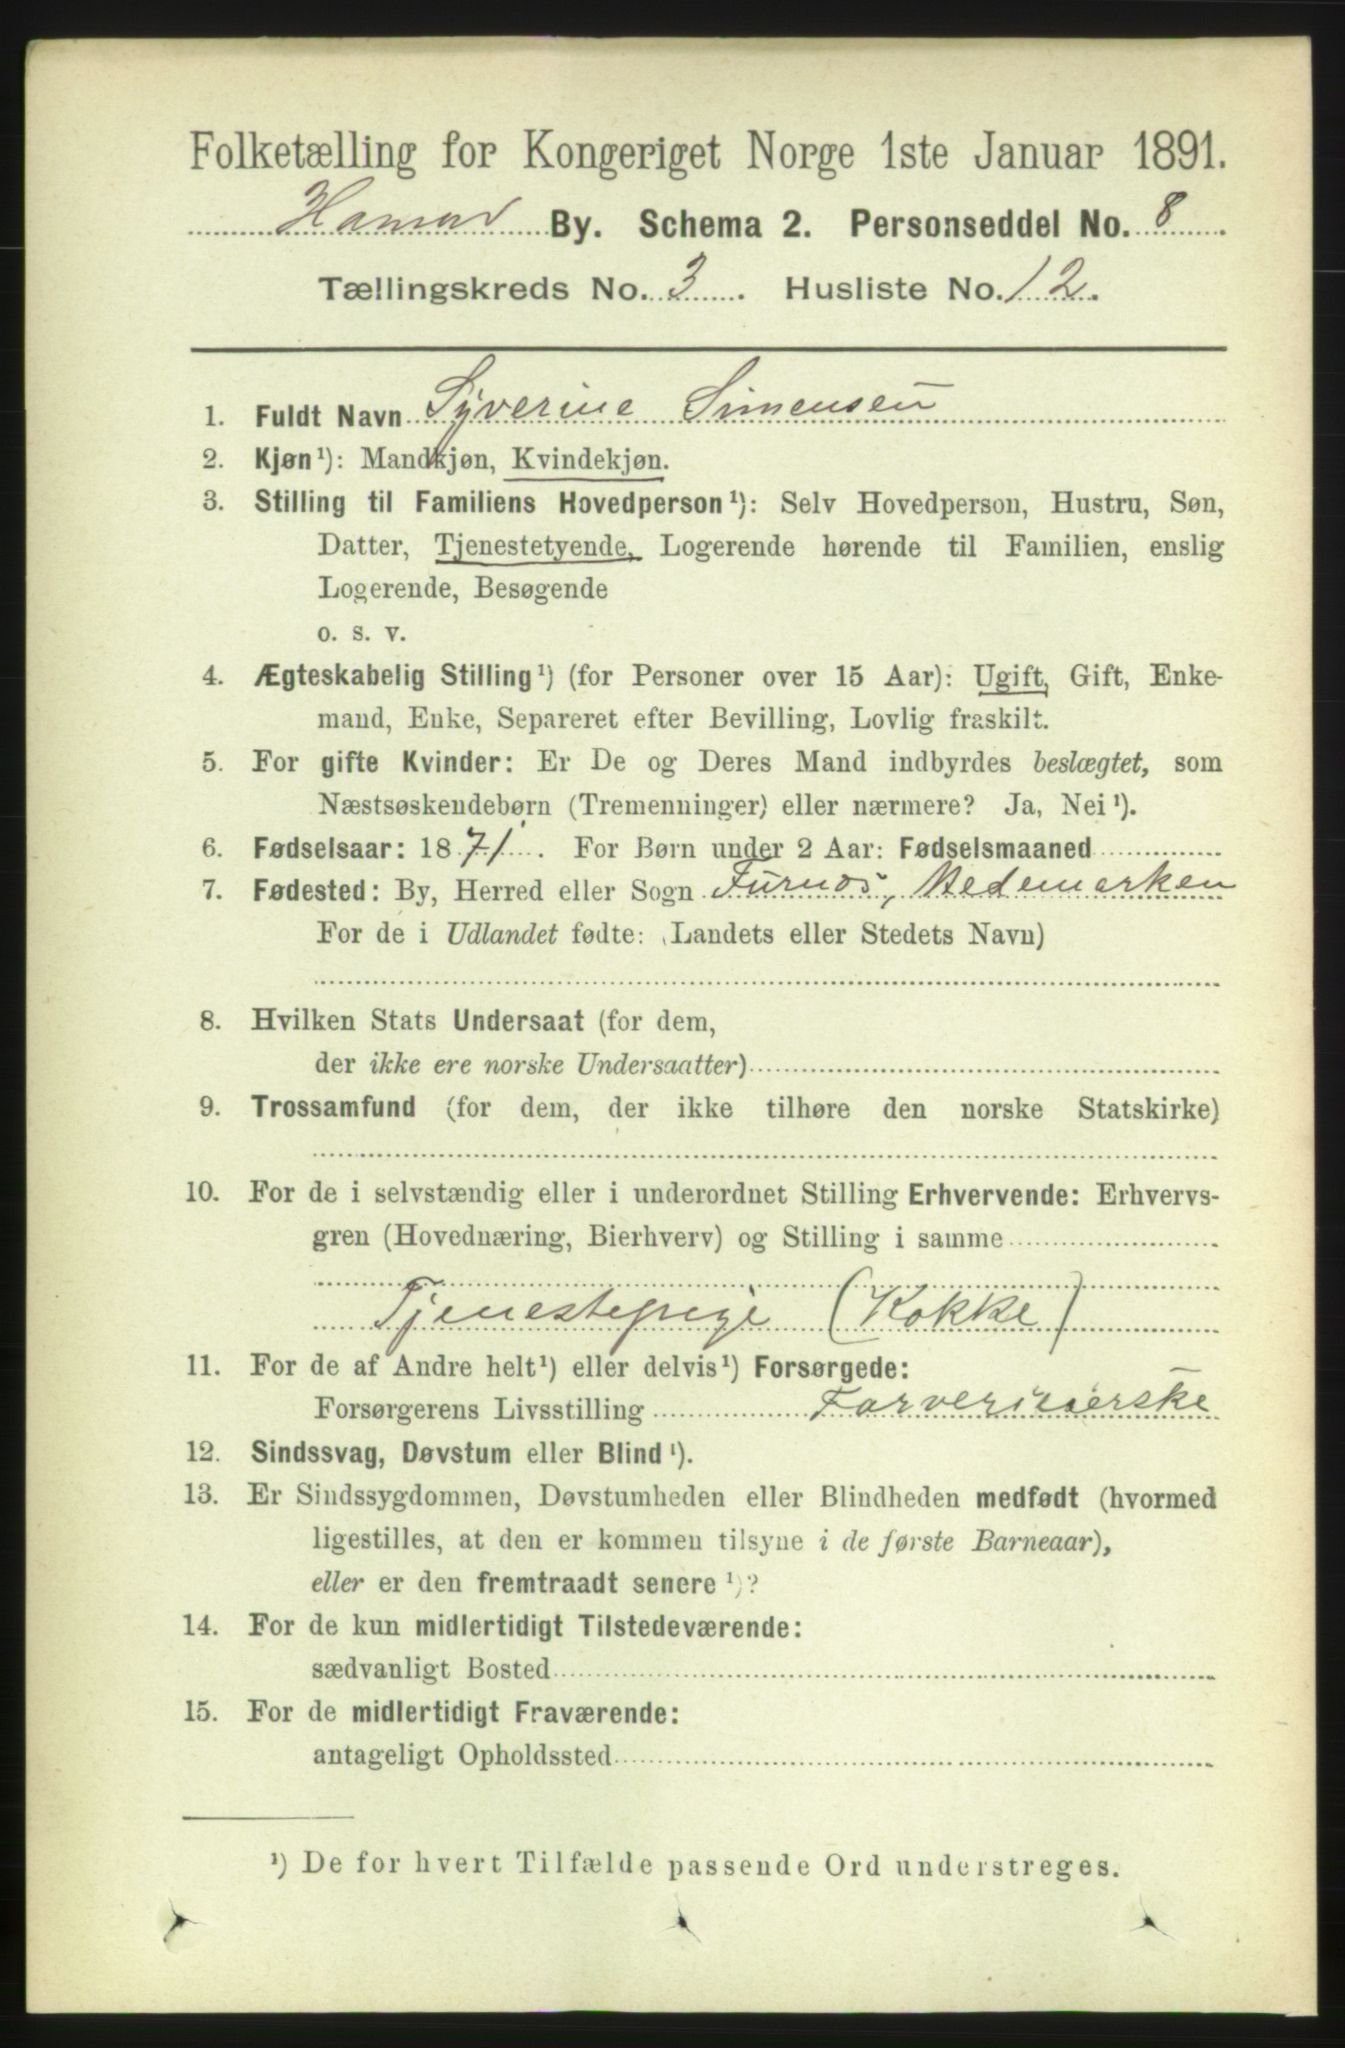 Folketælling for Kongeriget Norge 1ste Januar 1891.
Hamar By. Schema 2. Personseddel No. 8
Tællingskreds No. 3. Husliste No. 12.
1. Fuldt Navn Syverine Simensen
2. Kjøn¹): Mandkjøn, Kvindekjøn.
3. Stilling til Familiens Hovedperson¹): Selv Hovedperson, Hustru, Søn,
Datter, Tjenestetyende, Logerende hørende til Familien, enslig
Logerende, Besøgende
o. s. v.
4. Ægteskabelig Stilling¹) (for Personer over 15 Aar): Ugift, Gift, Enke-
mand, Enke, Separeret efter Bevilling, Lovlig fraskilt.
5. For gifte Kvinder: Er De og Deres Mand indbyrdes beslægtet, som
Næstsøskendebørn (Tremenninger) eller nærmere? Ja, Nei¹).
6. Fødselsaar: 1871. For Børn under 2 Aar: Fødselsmaaned
7. Fødested: By, Herred eller Sogn Furnæs, Hedemarken
For de i Udlandet fødte: (Landets eller Stedets Navn)
8. Hvilken Stats Undersaat (for dem,
der ikke ere norske Undersaatter)
9. Trossamfund (for dem, der ikke tilhøre den norske Statskirke)
10. For de i selvstændig eller i underordnet Stilling Erhvervende: Erhvervs-
gren (Hovednæring, Bierhverv) og Stilling i samme
Tjenestepige (Kokke)
11. For de af Andre helt¹) eller delvis¹) Forsørgede:
Forsørgerens Livsstilling
12. Sindssvag, Døvstum eller Blind¹).
13. Er Sindssygdommen, Døvstumheden eller Blindheden medfødt (hvormed
ligestilles, at den er kommen tilsyne i de første Barneaar),
eller er den fremtraadt senere¹)?
14. For de kun midlertidigt Tilstedeværende:
sædvanligt Bosted
15. For de midlertidigt Fraværende:
antageligt Opholdssted
¹) De for hvert Tilfælde passende Ord understreges.